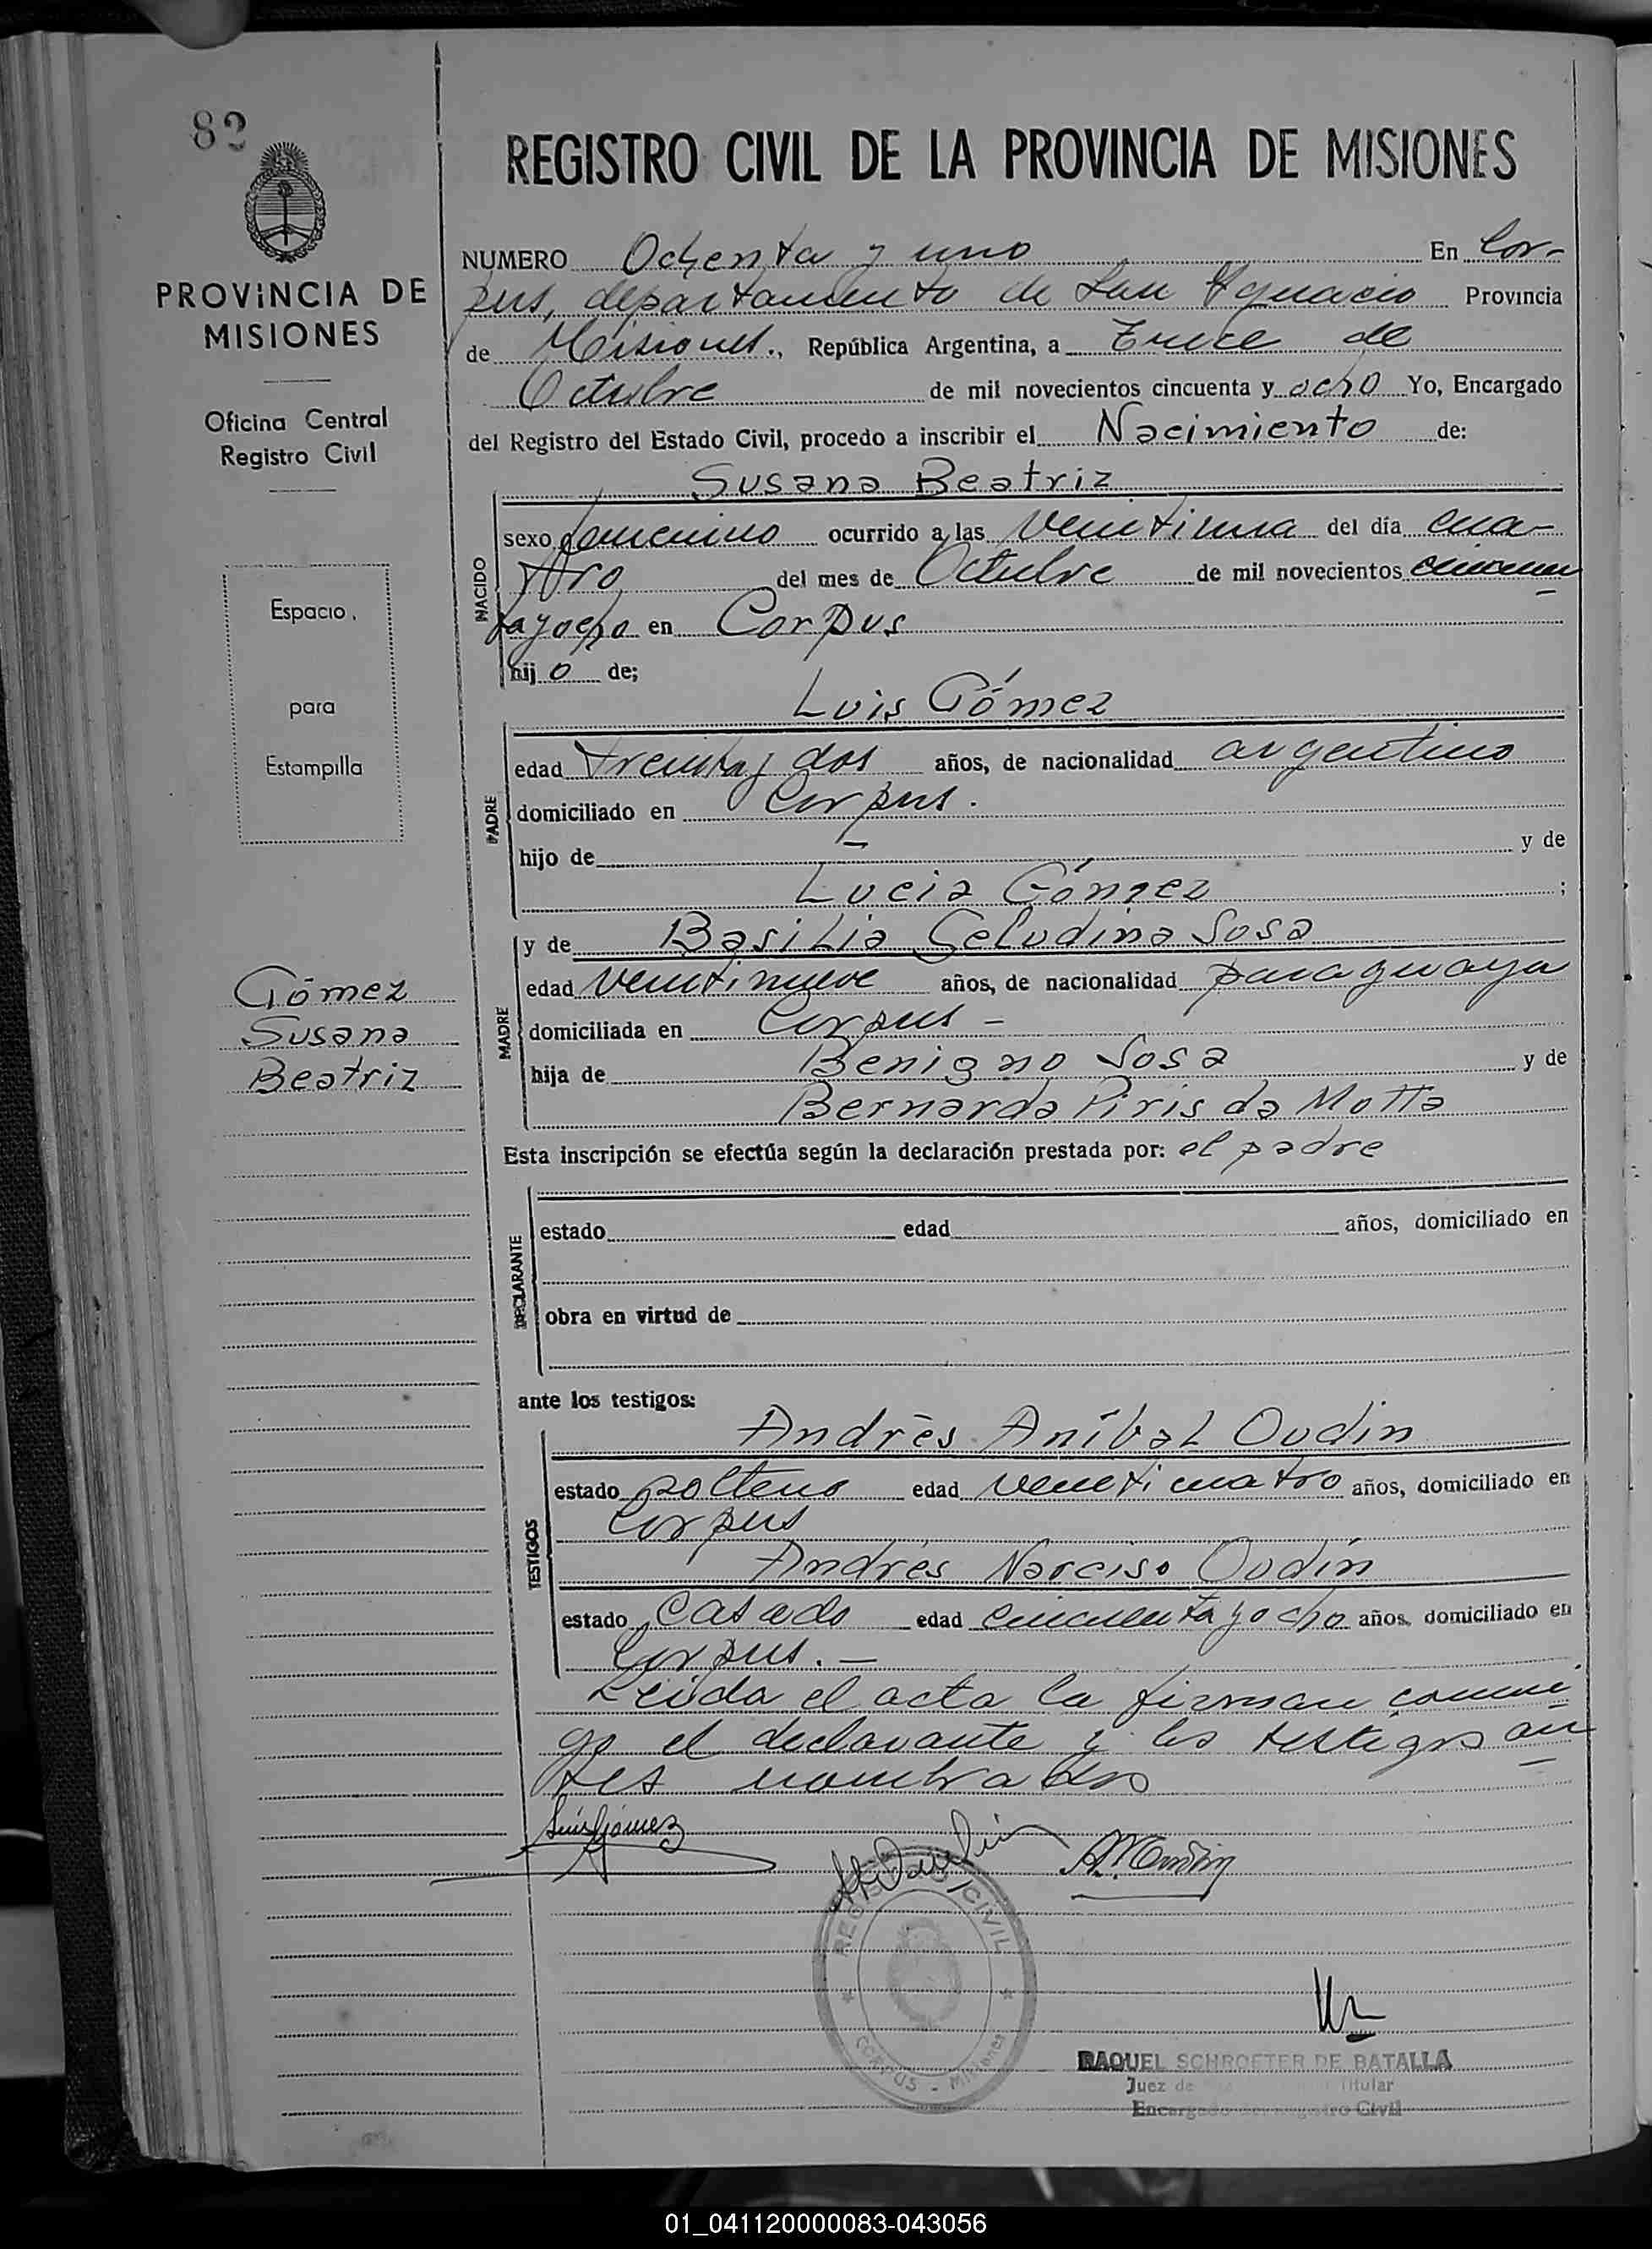 82
REGISTRO CIVIL DE LA PROVINCIA DE MISIONES
PROVINCIA DE
MISIONES
Oficina Central
Registro Civil
Espacio
para
Estampilla
Gómez
Susana
Beatriz
NUMERO Ochenta y uno En Cor-
pus, departamento de San Ignacio Provincia
de Misiones., República Argentina, a Trece de
Octubre de mil novecientos cincuenta y ocho Yo, Encargado
del Registro del Estado Civil, procedo a inscribir el Nacimiento de:
Susana Beatriz
NACIDO
sexo femenino ocurrido a las veintiuna del día cua-
tro del mes de Octubre de mil novecientos cincuen
ta y ocho en Corpus
hijo de;
Luis Gómez
PADRE
edad treinta y dos años, de nacionalidad argentino
domiciliado en Corpus.
hijo de — y de
Lucia Gómez ;
MADRE
y de Basilia Geludina Sosa
edad veintinueve años, de nacionalidad paraguaya
domiciliada en Corpus —
hija de Benigno Sosa y de
Bernarda Piris da Motta
Esta inscripción se efectúa según la declaración prestada por: el padre
DECLARANTE
estado edad años, domiciliado en
obra en virtud de
ante los testigos:
TESTIGOS
Andrés Aníbal Oudin
estado soltero edad veinticuatro años, domiciliado en
Corpus
Andrés Narciso Oudín
estado Casado edad cincuenta y ocho años, domiciliado en
Corpus. —
Leída el acta la firman conmi
go el declarante y los testigos an
tes nombrados
Luis Gómez
REGISTRO CIVIL
CORPUS - Misiones
RAQUEL SCHROETER DE BATALLA
Juez de Titular
Encargado del Registro Civil
01_041120000083-043056